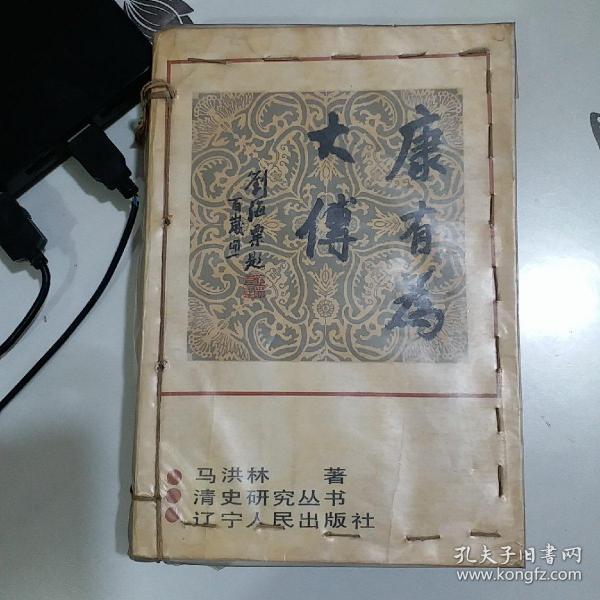 康有为
大傳
劉海粟题
百歲画
马洪林 著
清史研究丛书
辽宁人民出版社
孔夫子旧书网
www.kongfz.com